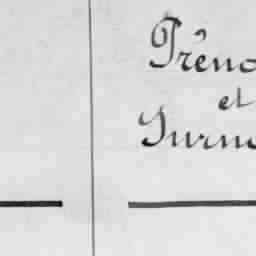 Prêno
et
Surno